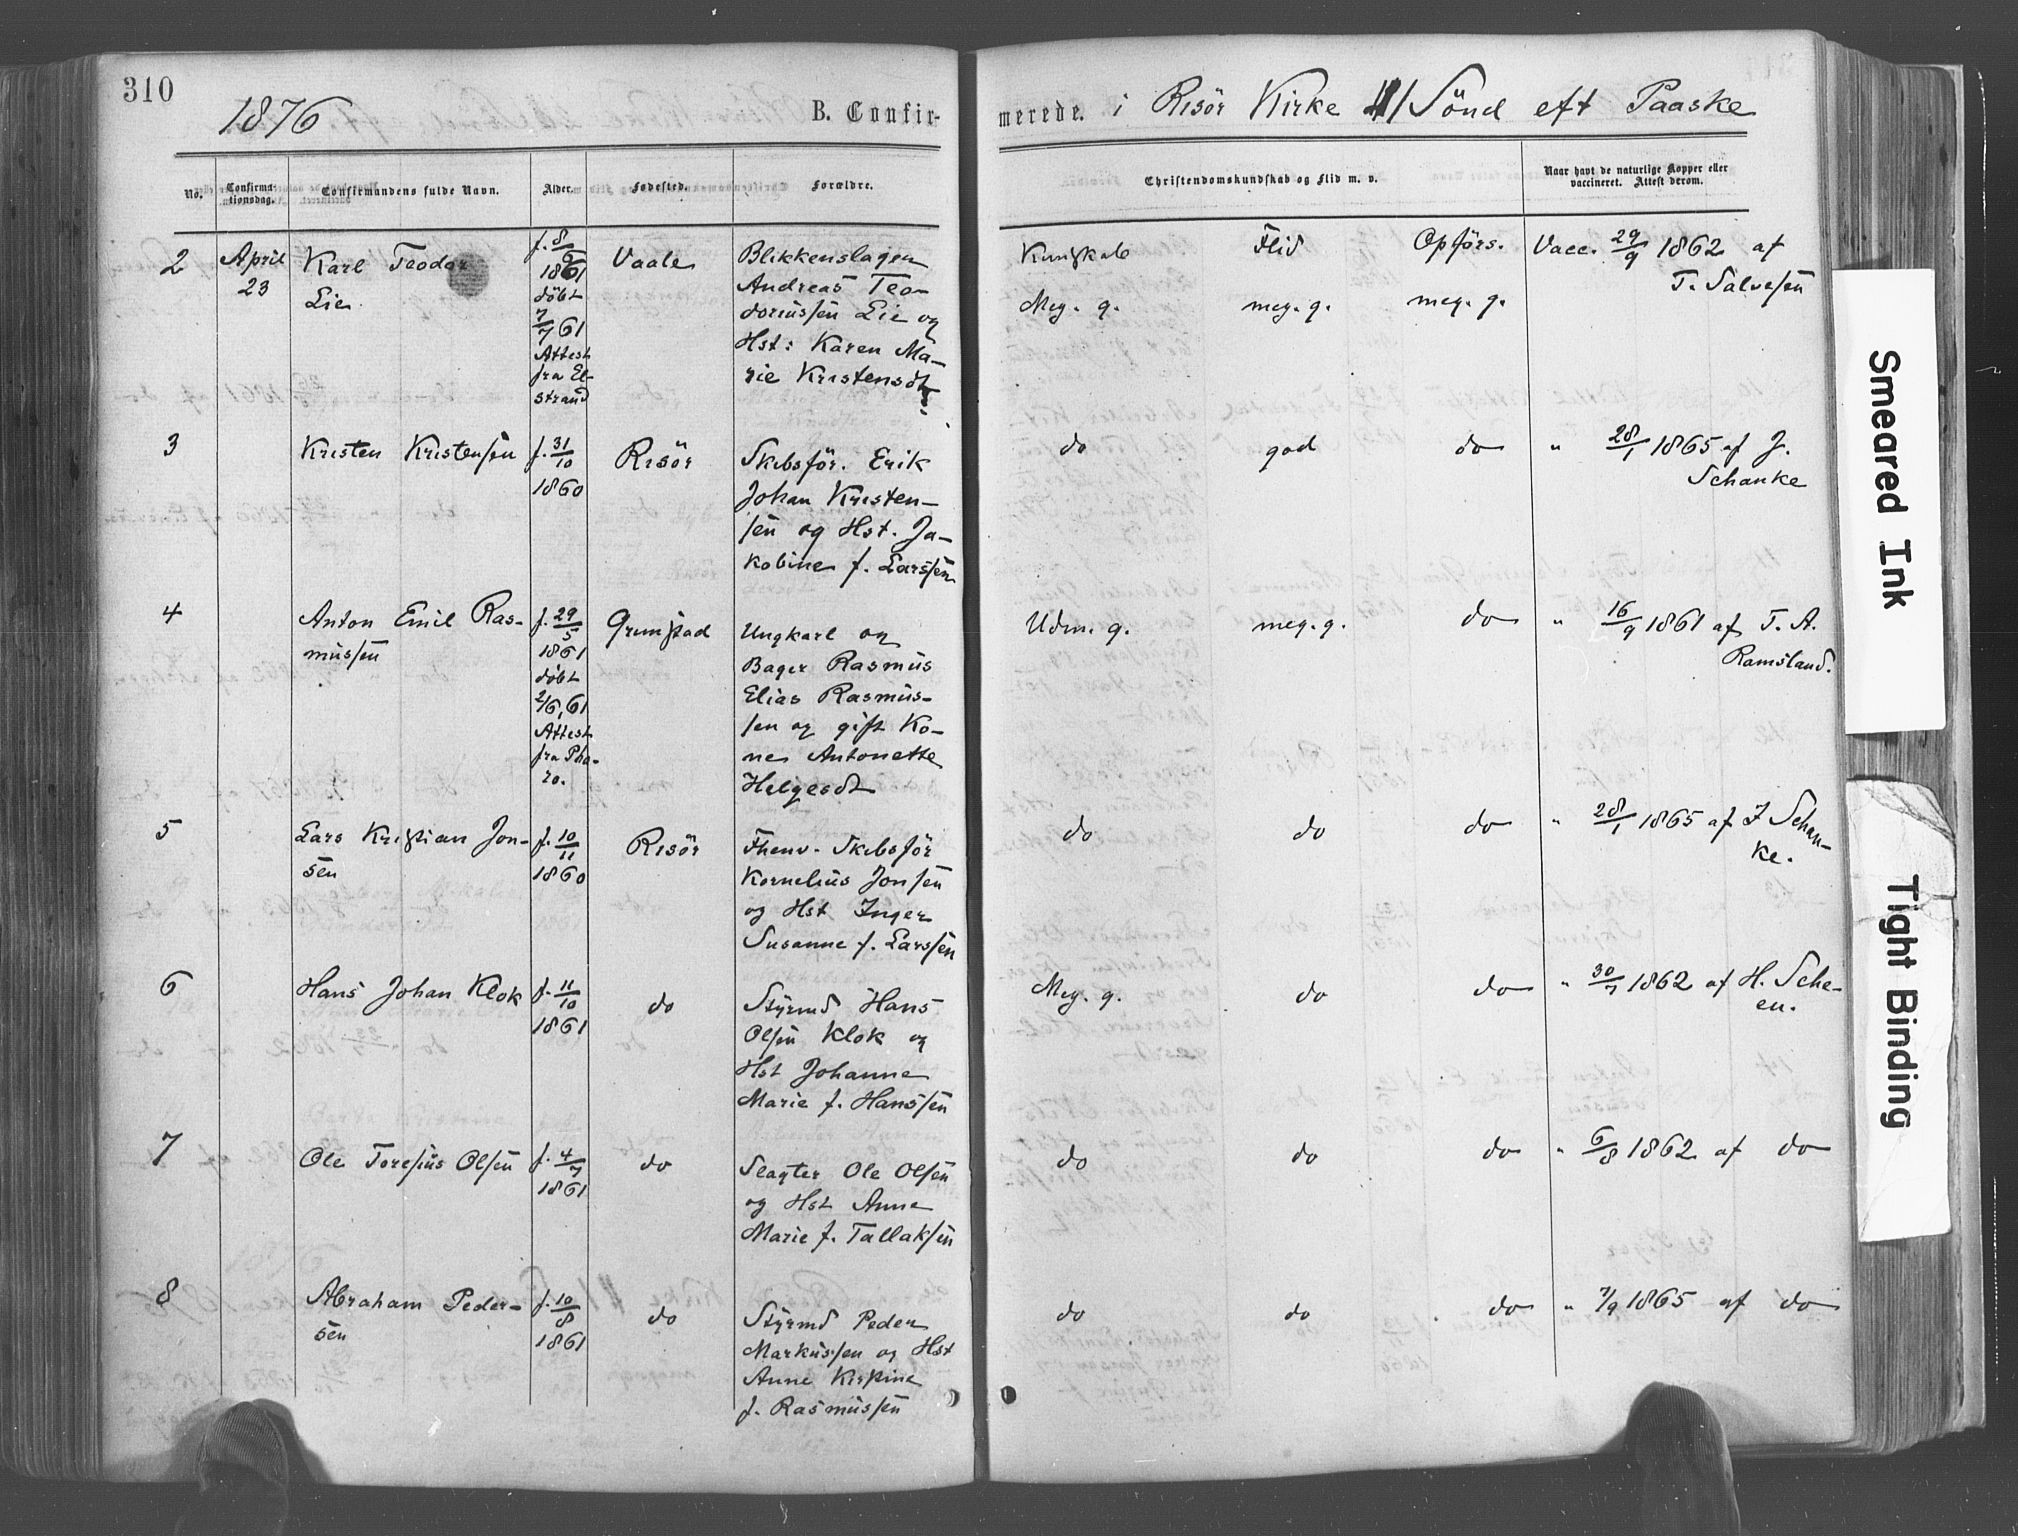 310
1876 B. Confir-
merede. i Risör Kirke 1 Sönd eft Paaske
No.
Confirma-
tionsdag.
Confirmandens fulde Navn.
Alder.
Fødested.
Forældre.
Christendomskundskab og Flid m. v.
Naar havt de naturlige Kopper eller
vaccineret. Attest derom.
2
April
23
Karl Teodor
Lie
f. 8/6
1861
döbt
7/7 61
Attest
fra El-
strand
Vaale
Blikkenslager
Andreas Teo-
doriussen Lie og
Hst: Karen Ma-
rie Kristensdtr.
Kunskab Flid Opförs.
Meg. g. meg. g. meg. g.
Vacc. 29/9 1862 af
T. Salvesen
3
Kristen Kristensen
f. 31/10
1860
Risör
Skibsför. Erik
Johan Kristen-
sen og Hst. Ja-
kobine f. Larssen
do god do
" 28/1 1865 af J.
Schanke
4
Anton Emil Ras-
mussen
f. 29/5
1861
döbt
2/6, 61
Attest
fra Pha-
ro.
Grimstad
Ungkarl og
Bager Rasmus
Elias Rasmus-
sen og gift Ko-
ne Antonette
Helgesdt
Udm. g. meg. g. do
" 16/9 1861 af T. A.
Ramsland.
5
Lars Kristian Jon-
sen
f. 10/11
1860
Risör
Fhenv. Skibsför
Kornelius Jonsen
og Hst Inger
Susanne f. Larssen
do do do
" 28/1 1865 af J Schan-
ke.
6
Hans Johan Klok
f. 11/10
1861
do
Styrmd Hans
Olsen Klok og
Hst Johanne
Marie f. Hanssen
Meg. g. do do
" 30/7 1862 af H. Sche-
en.
7
Ole Toresius Olsen
f. 4/7
1861
do
Slagter Ole Olsen
og Hst Anne
Marie f. Tallaksen
do do do
" 6/8 1862 af do
8
Abraham Peder-
sen
f. 10/8
1861
do
Styrmd Peder
Markussen og Hst
Anne Kirstine
f. Rasmussen
do do do
" 7/9 1865 af do
Smeared Ink
Tight Binding